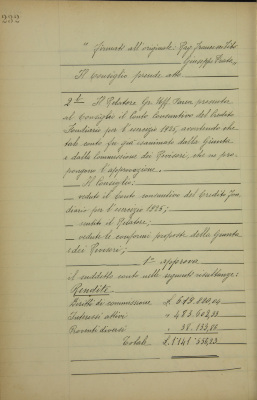 232
" Firmati all'originale: Rag.
Giuseppe
Il Consiglio prende atto
2° Il Relatore Gr. Uff. presenta
al Consiglio il Conto Consuntivo del Credito
Fondiario per l'esercizio 1925, avvertendo che
tale conto fu già esaminato dalla Giunta
e dalla Commissione dei Revisori, che ne pro-
pongono l'approvazione.
Il Consiglio:
veduto il Conto consuntivo del Credito Fon-
diario per l'esercizio 1925;
sentito il Relatore;
vedute le conformi proposte della Giunta
e dei Revisori;
1° approva
il suddetto conto nelle seguenti risultanze:
Rendite
Diritti di commissione £
Interessi attivi "
Proventi diversi "
Totale £